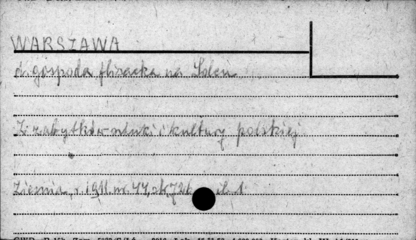 WARSZAWA
gospoda flisacka na Solcu
Z zabytków sztuki i kultury polskiej
Ziemia, r. 1911, nr 44, str. 726